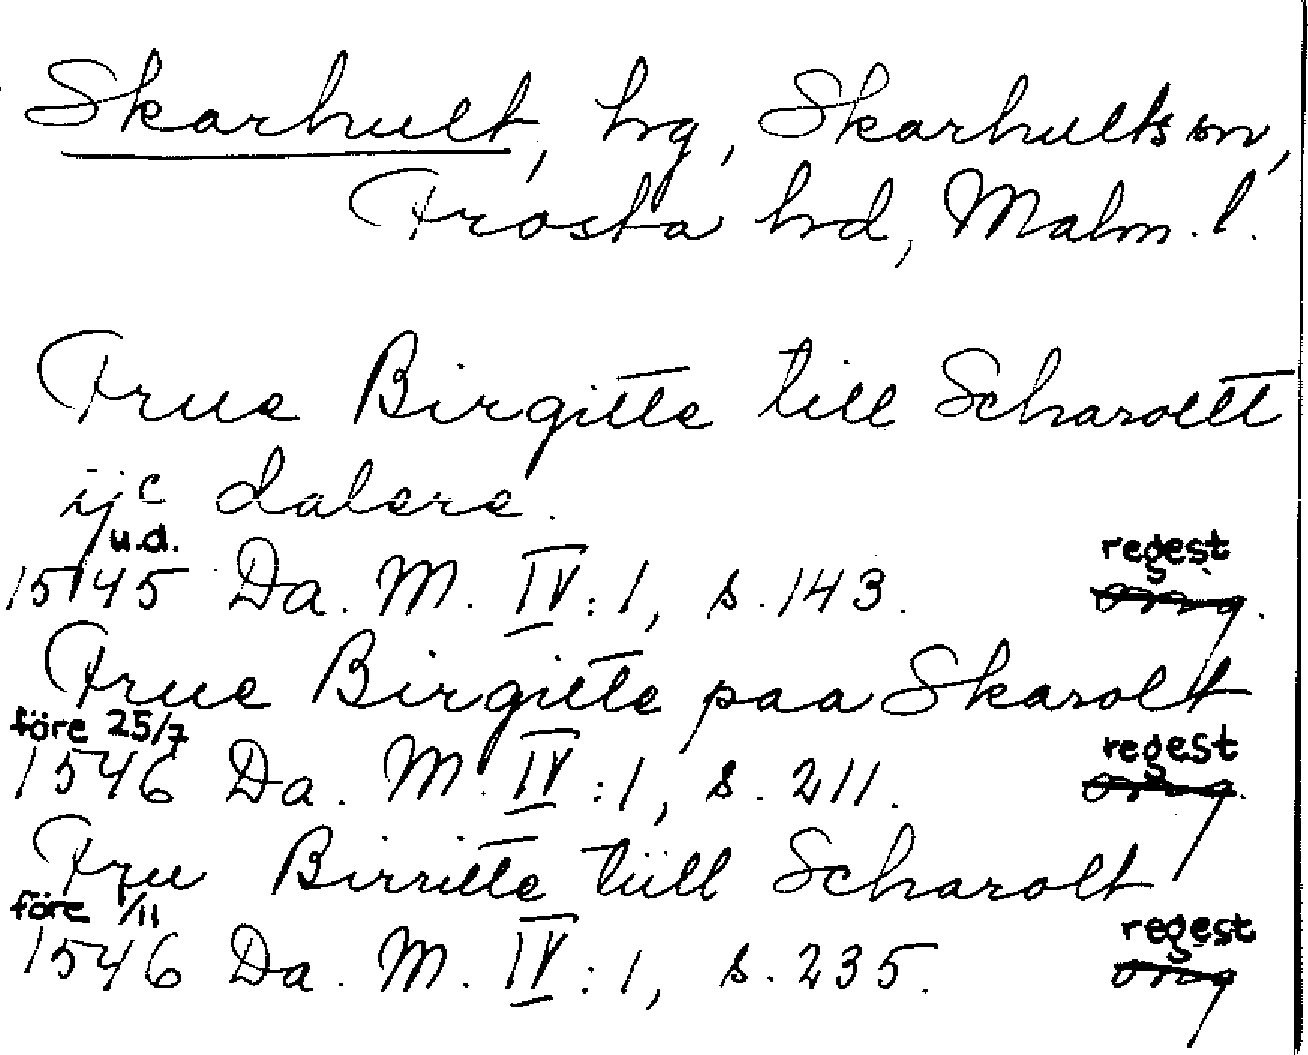 Skarhult, hg, Skarhults sn,
Frosta hd, Malm. l.
Frue Birgitte till Scharoltt
ijc dalere.
u.d. regest
1545 Da. M. IV:1, s. 143. orig.
Frue Birgitte paa Skarolt
före 25/7 regest
1546 Da. M. IV:1, s. 211. orig.
Fru Birritte tiill Scharolt
före 1/11 regest
1546 Da. M. IV:1, s. 235. orig